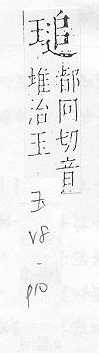 都回切音
堆治玉
玉 V8 - p10